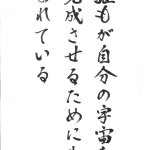 誰もが自分の宇宙を
完成させるために
れている